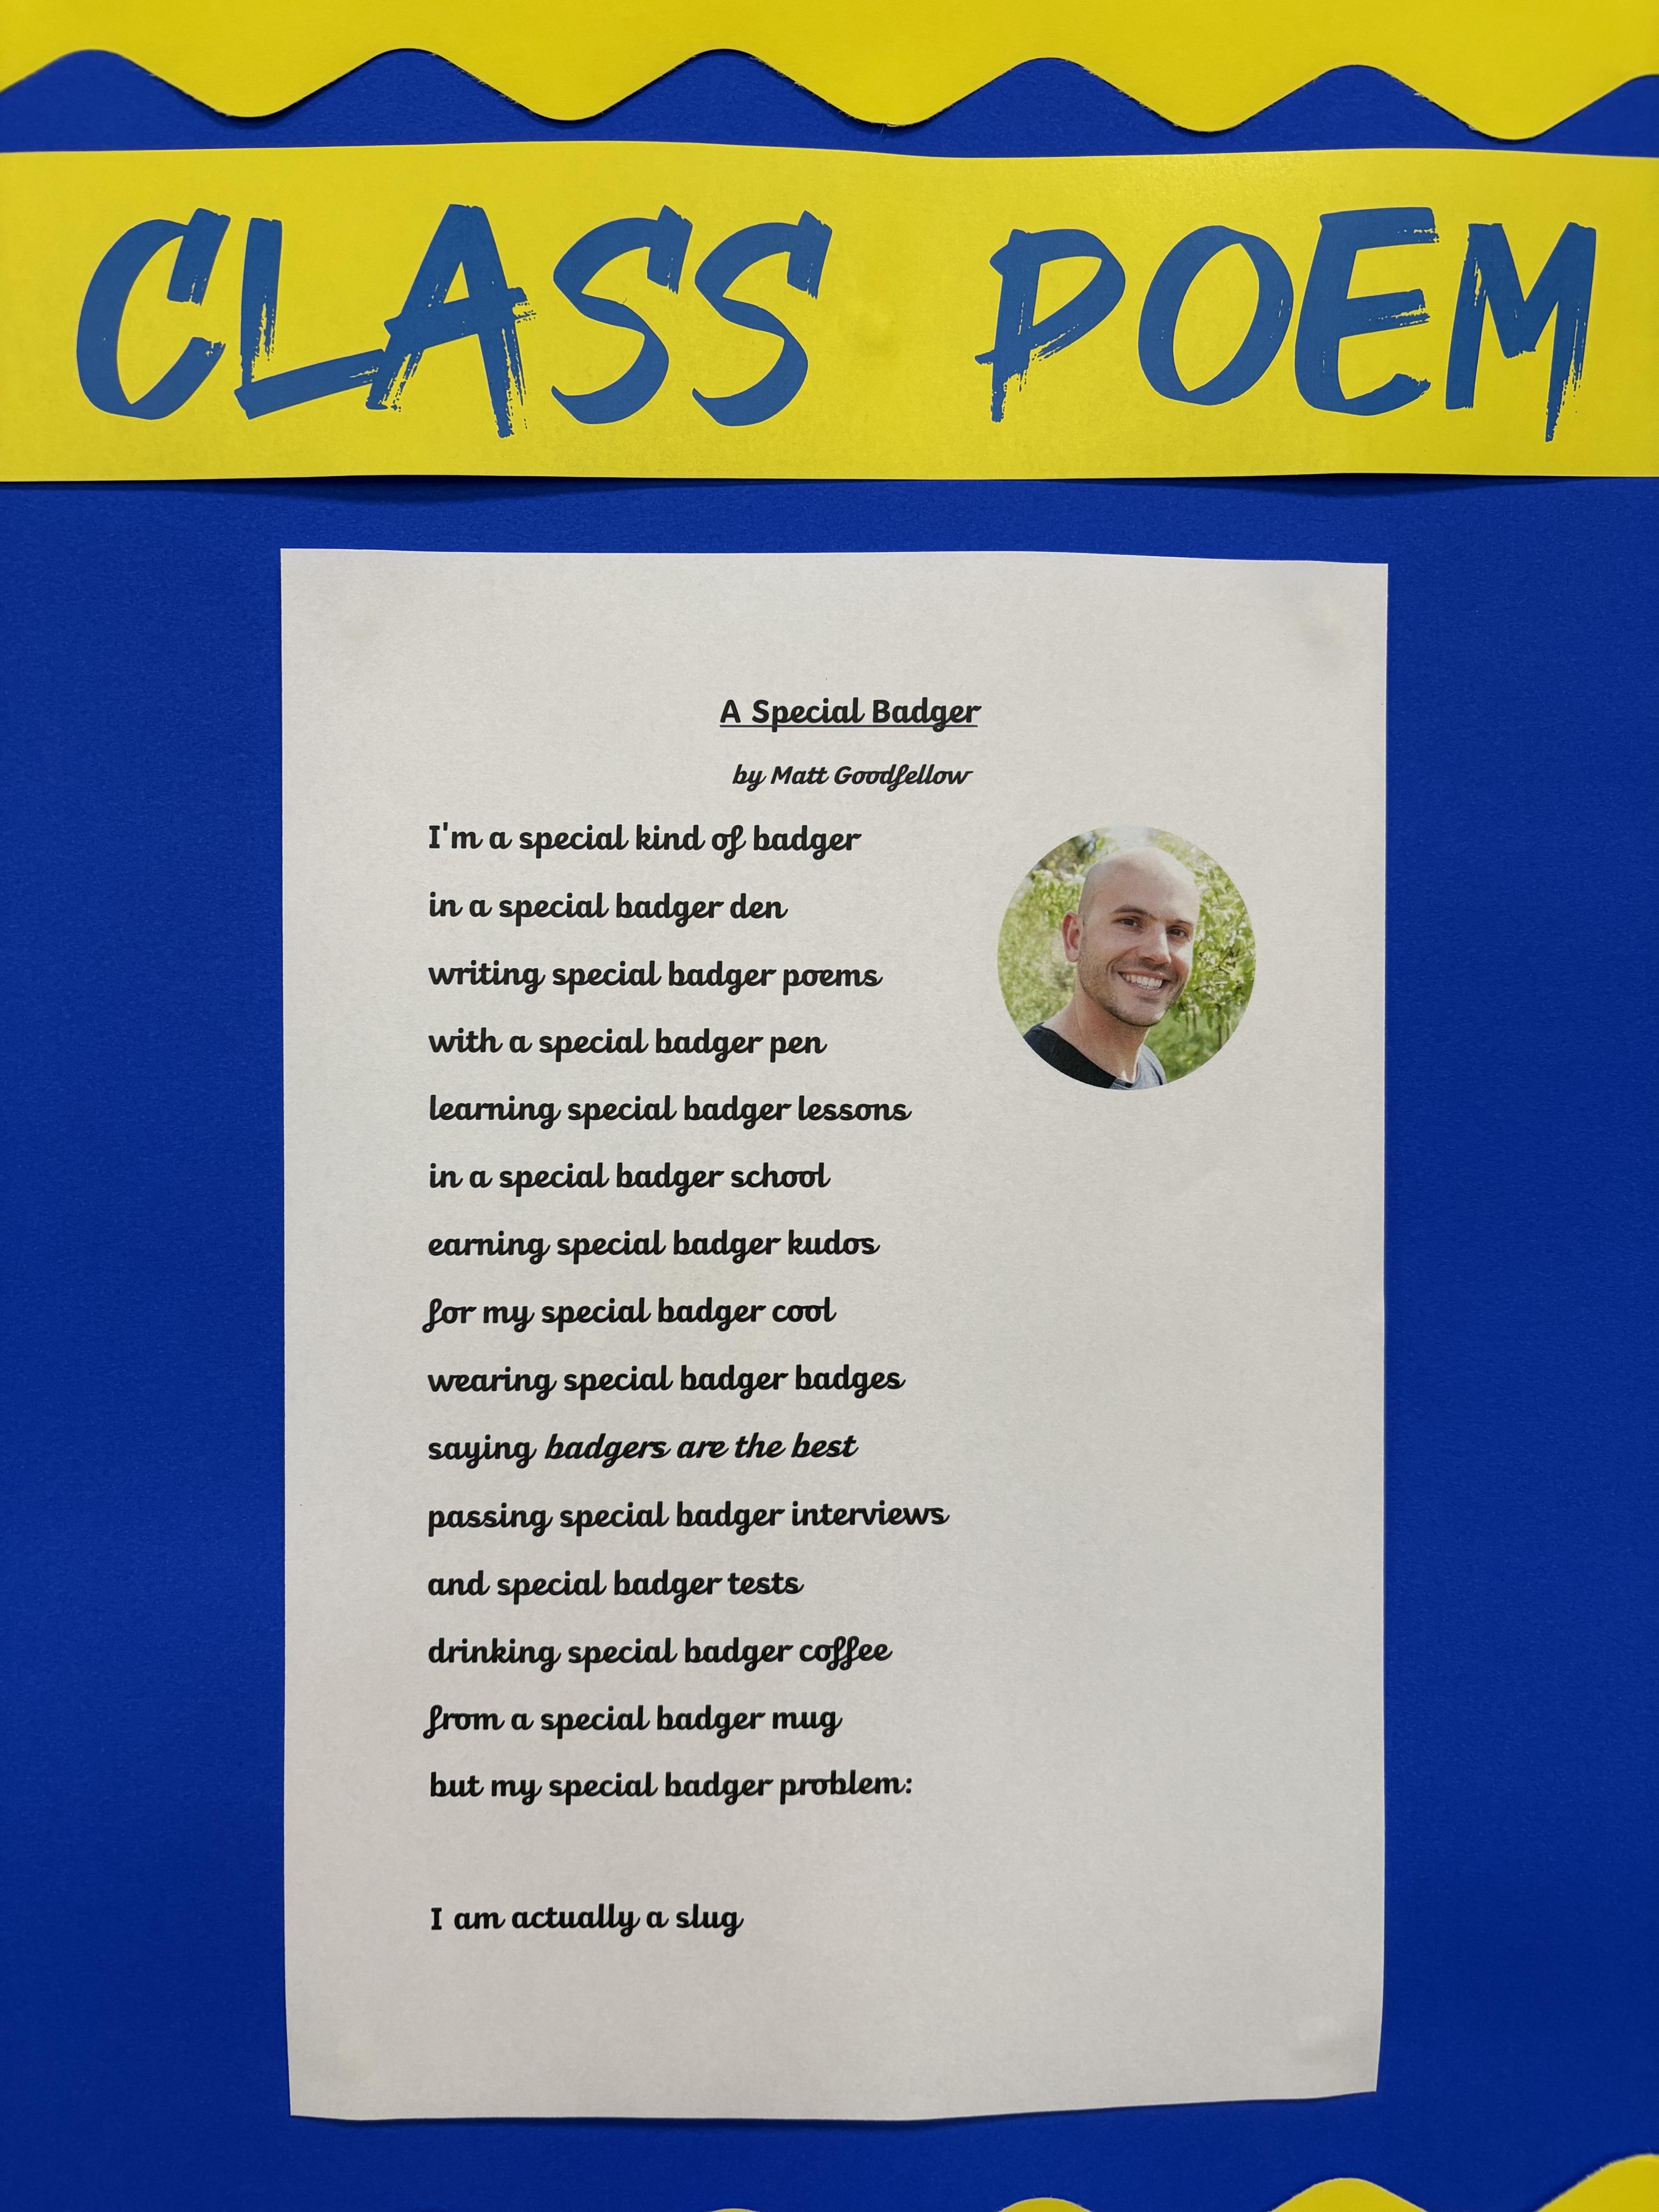 CLASS POEM
A Special Badger
by Matt Goodfellow
I'm a special kind of badger
in a special badger den
writing special badger poems
with a special badger pen
learning special badger lessons
in a special badger school
earning special badger kudos
for my special badger cool
wearing special badger badges
saying badgers are the best
passing special badger interviews
and special badger tests
drinking special badger coffee
from a special badger mug
but my special badger problem:
I am actually a slug